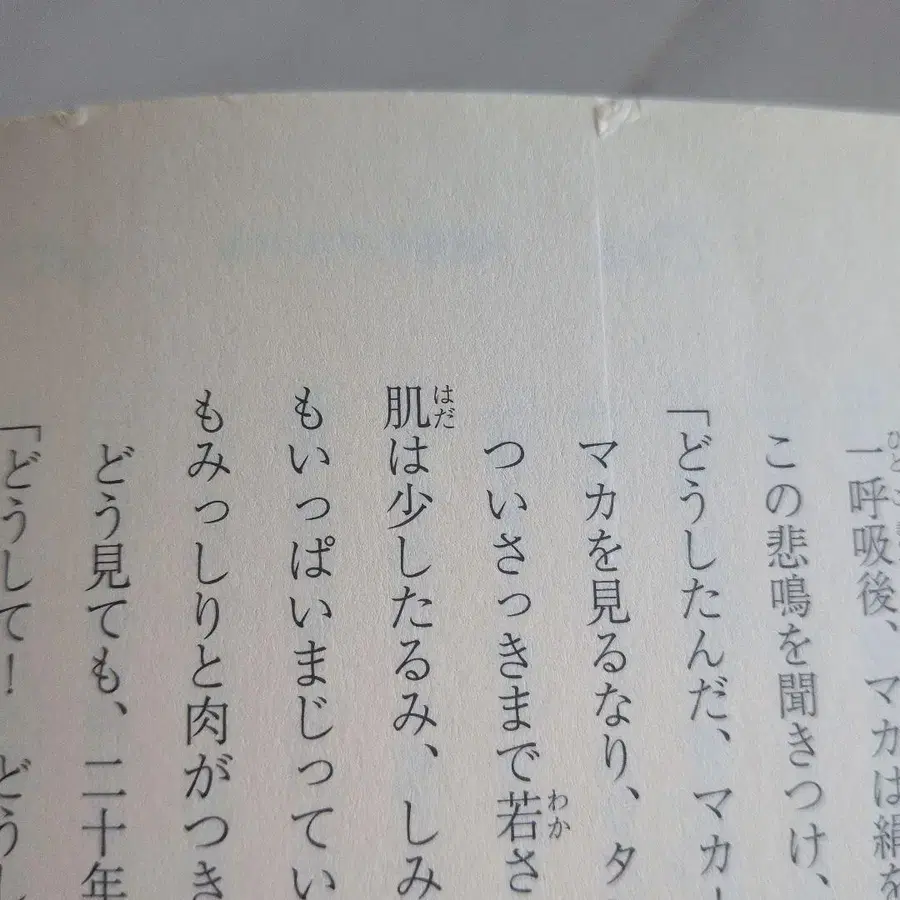 一呼吸後、マカは絹を
この悲鳴を聞きつけ、
「どうしたんだ、マカ
マカを見るなり、タ
ついさっきまで若さ
肌は少したるみ、しみ
もいっぱいまじってい
もみっしりと肉がつき
どう見ても、二十年
「どうして！　どうし